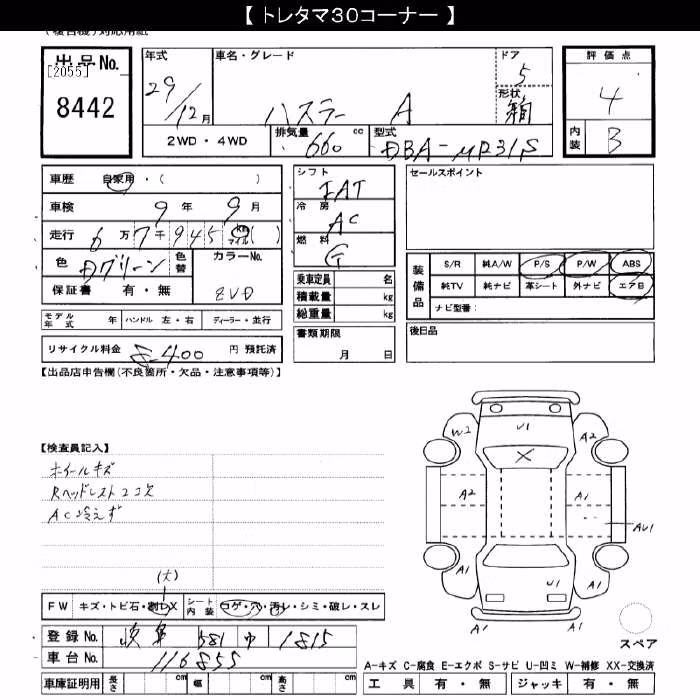 【 トレタマ30コーナー 】
(複合機)対応用紙
出品No.
[2055]
8442
年式 29/12月
車名・グレード ハスラー A
ドア 5
形状 箱
2WD・4WD
排気量 660 cc
型式 DBA-MR31S
評価点 4
内装 B
車歴 自家用・( )
車検 9年 9月
走行 6万7千945 km マイル ( )
色 Dグリーン 色替 カラーNo. ZVD
保証書 有・無
シフト IAT
冷房 AC
燃料 G
乗車定員 名
積載量 kg
総重量 kg
書類期限 月 日
セールスポイント
装備品 S/R 純A/W P/S P/W ABS
純TV 純ナビ 革シート 外ナビ エアB
ナビ型番:
後日品
モデル年式 年 ハンドル 左・右 ディーラー・並行
リサイクル料金 8400 円 預託済
【出品店申告欄(不良箇所・欠品・注意事項等)】
【検査員記入】
ホイールキズ
Rヘッドレスト2コ欠
AC冷えず
W2 U1 A2
X
A2 A1
AU1
A1 U1 A1
A1 A1
スペア
(大)
FW キズ・トビ石・割レX シート内装 コゲ・穴・汚レ・シミ・破レ・スレ
登録No. 岐阜 581 ゆ 1815
車台No. 116855
車庫証明用 長さ cm 幅 cm 高さ cm
A-キズ C-腐食 E-エクボ S-サビ U-凹ミ W-補修 XX-交換済
工具 有・無 ジャッキ 有・無